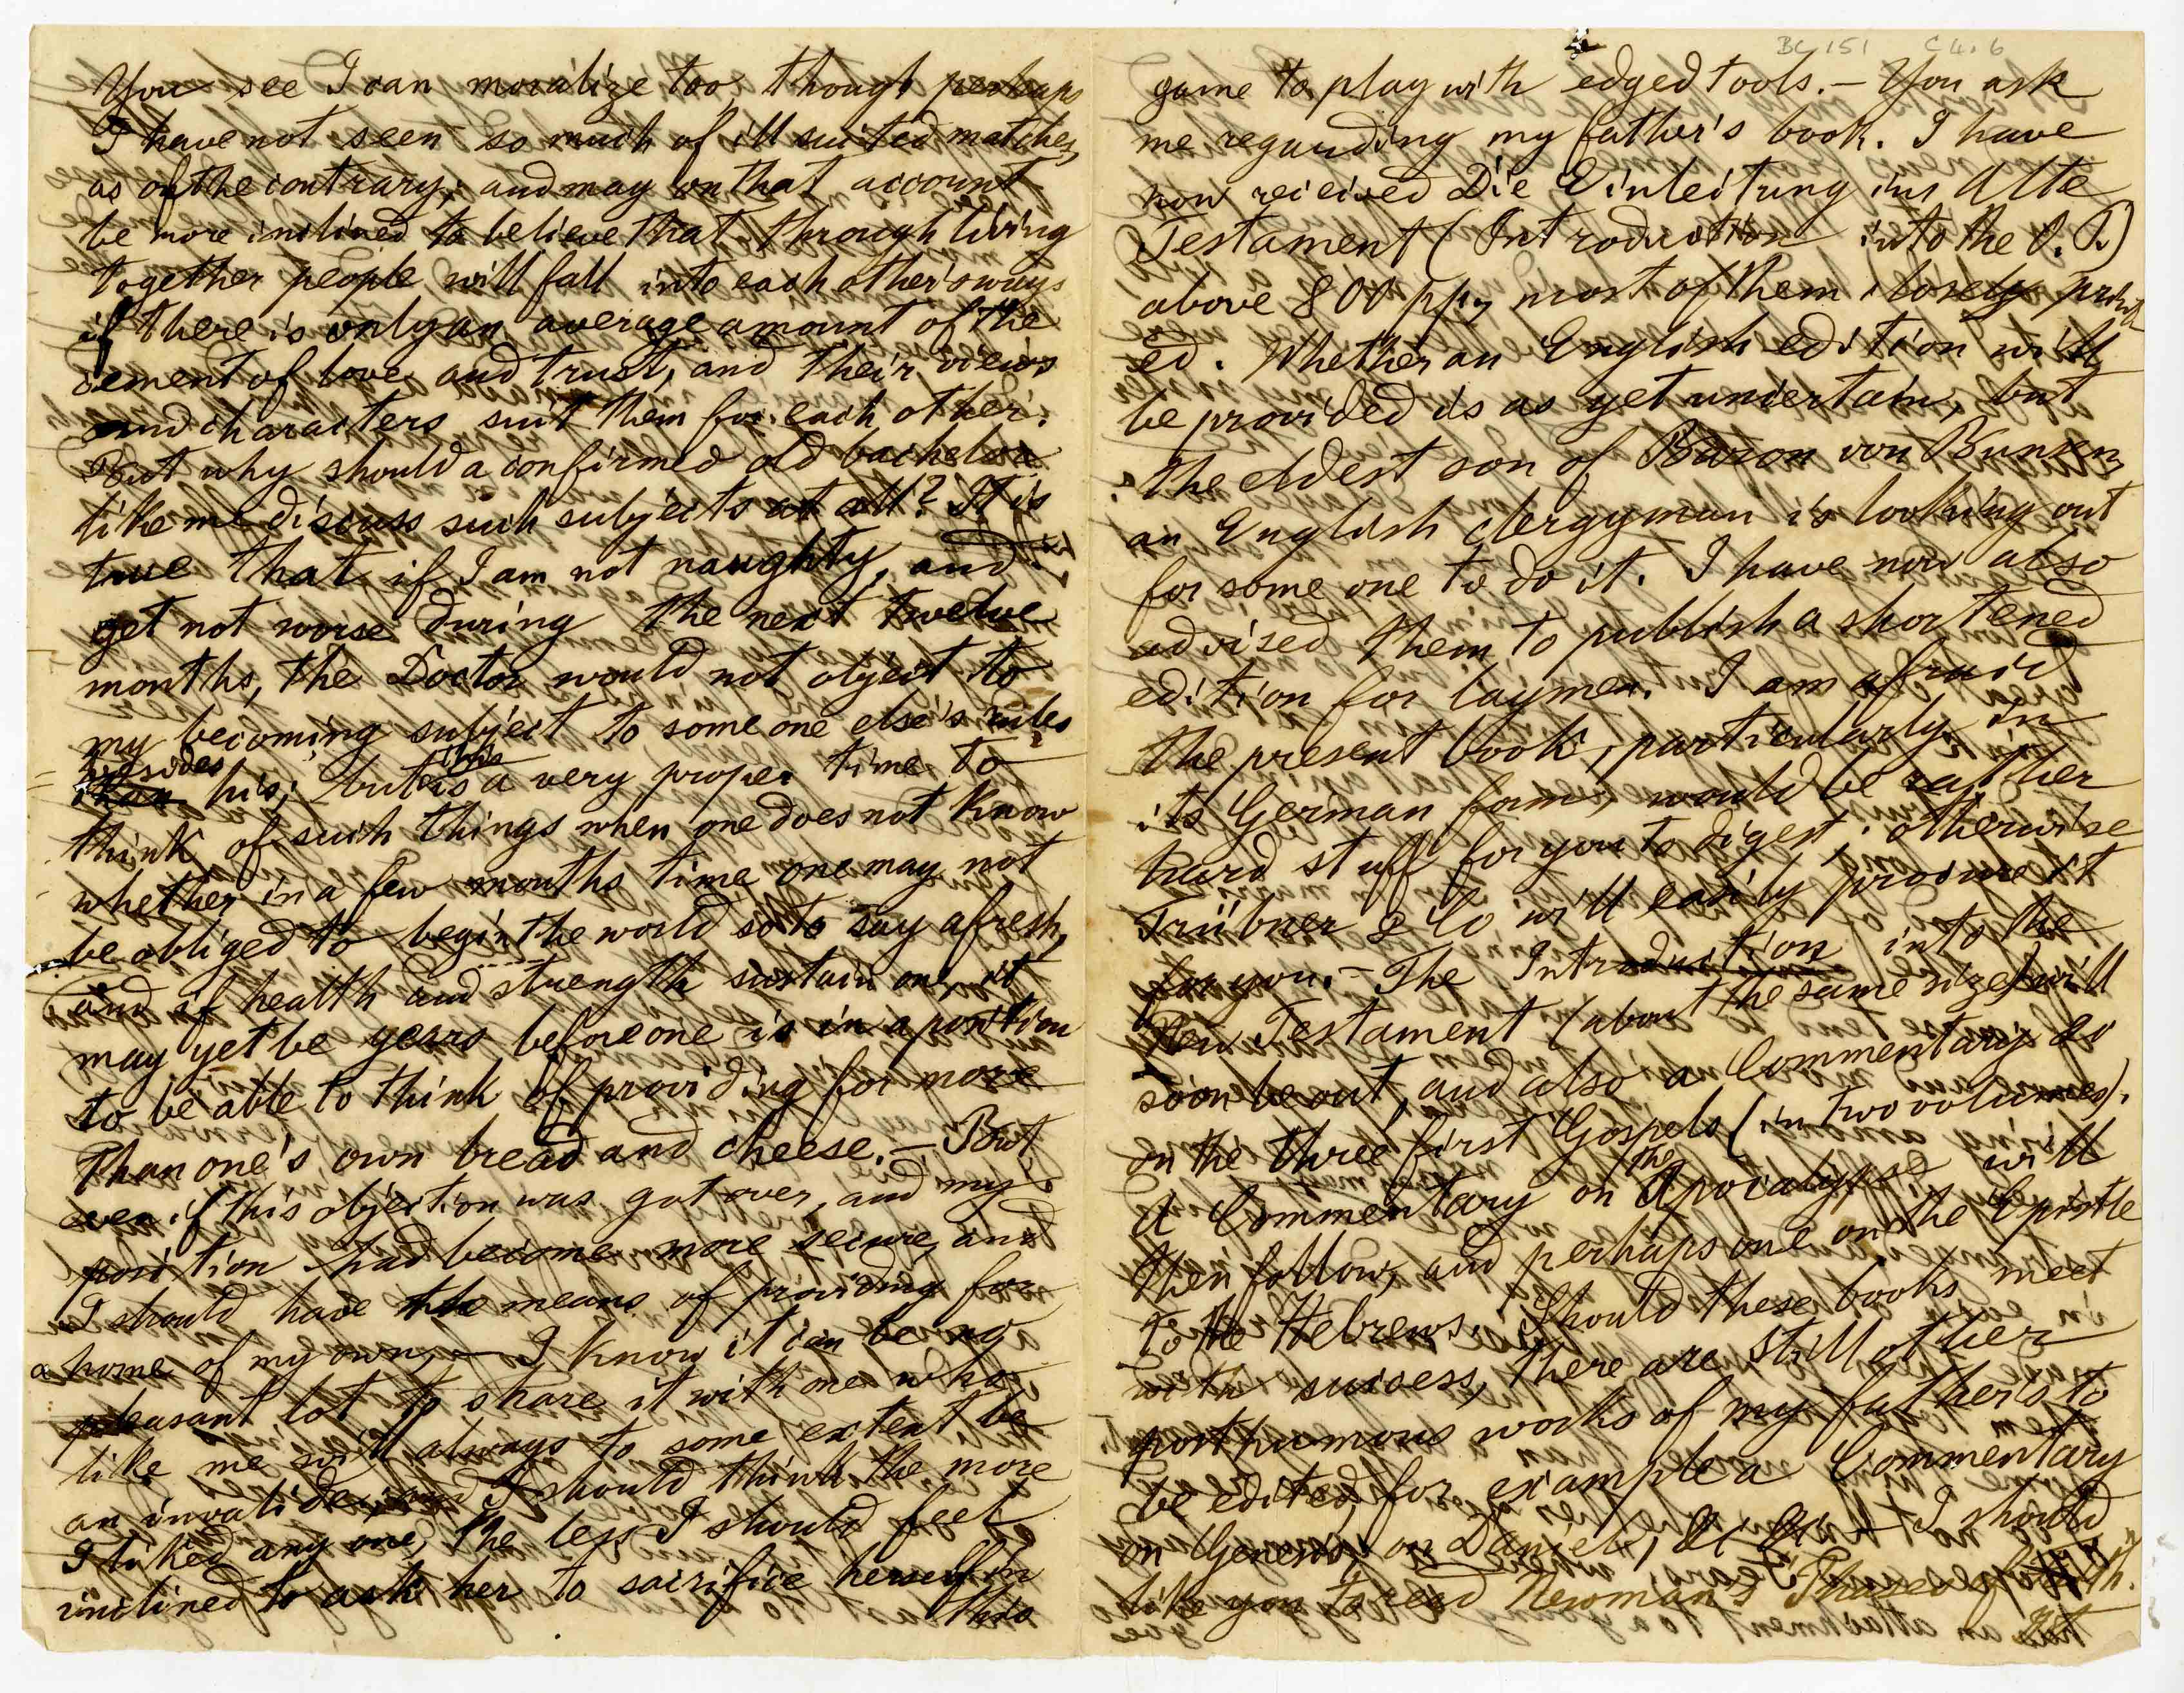 You see I can moralize too, though perhaps
I have not seen so much of ill suited matches,
as of the contrary; and may on that account
be more inclined to believe that through living
together people will fall into each other's ways
if there is only an average amount of the
cement of love and trust, and their views
and characters suit them for each other.
But why should a confirmed old bachelor
like me discuss such subjects at all? It is
true that if I am not naughty, and
get not worse during the next twelve
months, the Doctor would not object to
my becoming subject to some one else's rules
besides
than his; but is this a very proper time to
think of such things when one does not know
whether in a few months time one may not
be obliged to begin the world so to say afresh,
and if health and strength sustain one, it
may yet be years before one is in a position
to be able to think of providing for more
than one's own bread and cheese. — But
even if this objection was got over, and my
position had become more secure, and
I should have the means of providing for
a home of my own, — I know it can be no
pleasant lot to share it with one who
like me will always to some extent be
an invalide, and I should think the more
I liked any one, the less I should feel
inclined to ask her to sacrifice herself in
this
BC 151 C4.6
game to play with edged tools. — You ask
me regarding my father's book. I have
now received Die Einleitung ins Alte
Testament (Introduction into the O. T.)
above 800 pp, most of them closely print-
ed. Whether an English edition will
be provided is as yet uncertain, but
the eldest son of Baron von Bunsen,
an English clergyman is looking out
for some one to do it. I have now also
advised them to publish a shortened
edition for laymen. I am afraid
the present book, particularly in
its German form, would be rather
hard stuff for you to digest; otherwise
Trübner & Co will easily procure it
for you. — The Introduction into the
New Testament (about the same size) will
soon be out, and also a Commentary
on the three first Gospels (in two volumes).
A Commentary on the Apocalypse will
then follow, and perhaps one on the Epistle
to the Hebrews. Should these books meet
with success, there are still other
posthumous works of my father's to
be edited, for example a Commentary
on Genesis, on Daniel, &c &c. — I should
like you to read Newman's Phases of Faith.